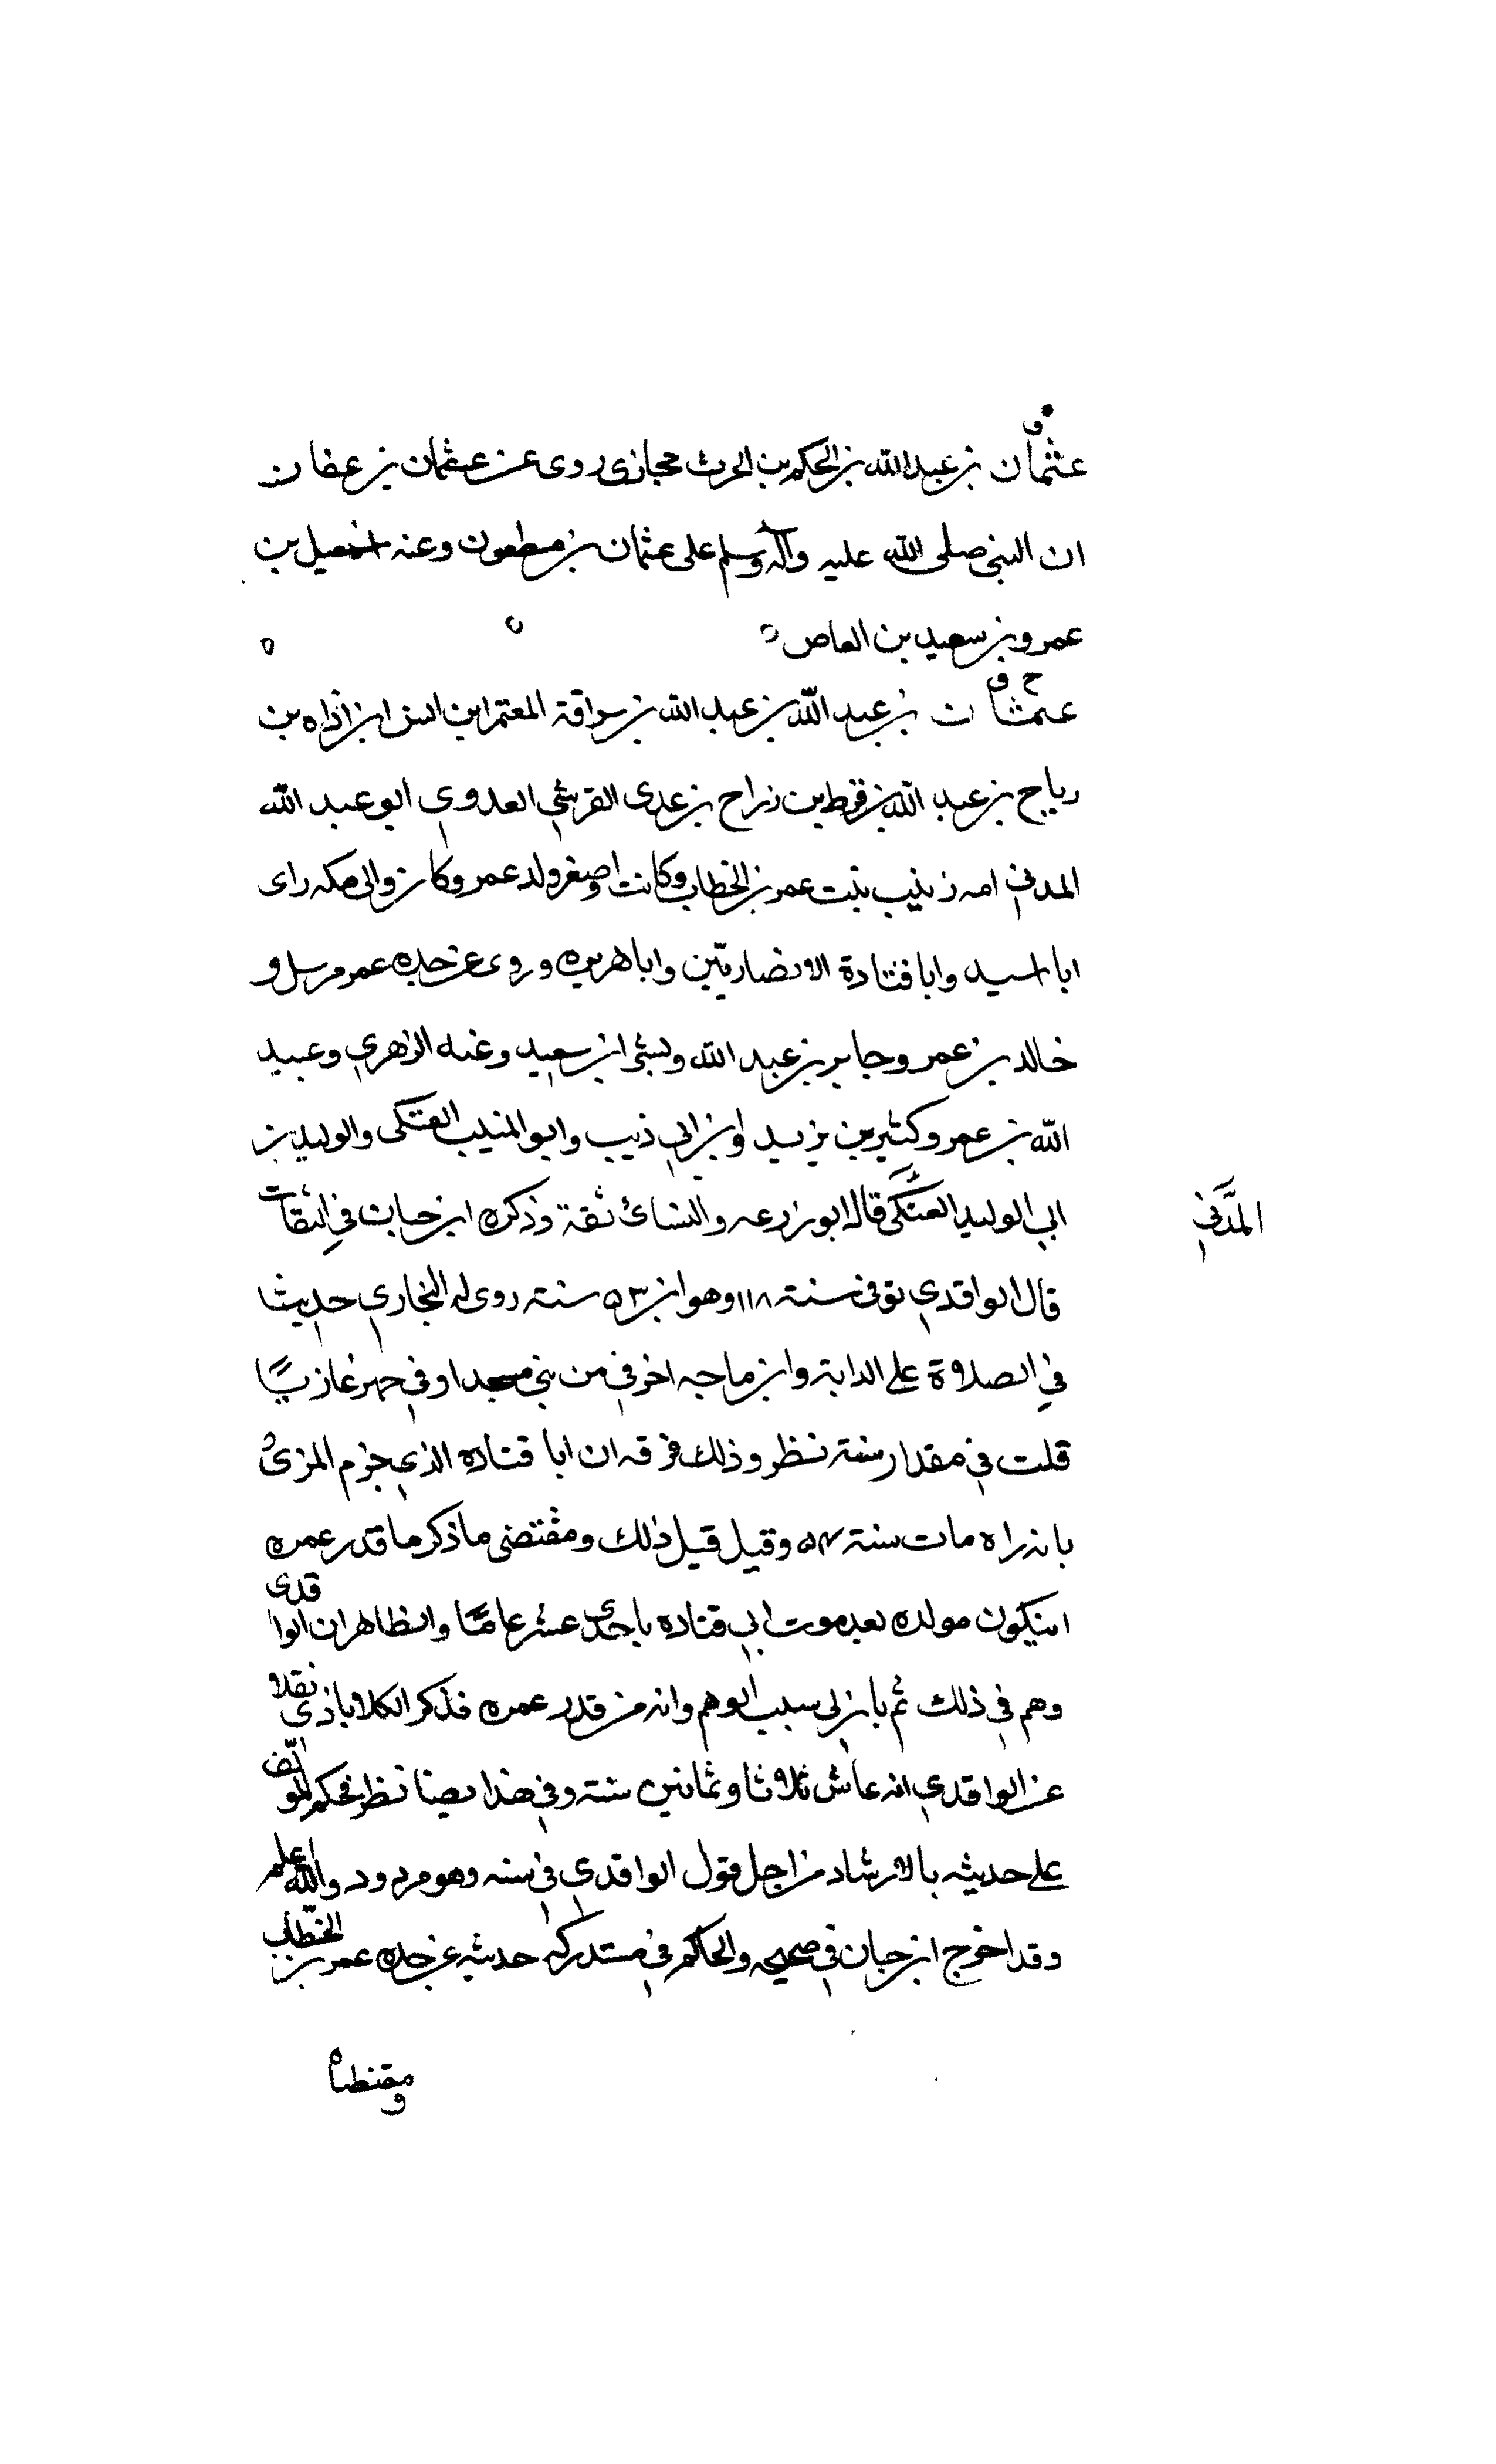 ق
عثمان بن عبد الله بن الحكم بن الحرث حجازى روى عن عثمان بن عفان
ان النبى صلى الله عليه وآله وسلم على عثمان بن مظعون وعنه اسمعيل بن
عمرو بن سعيد بن العاص
خ ق
عثمان بن عبد الله بن عبد الله بن سراقة المعتمر ابن انس ابن اذاه بن
رياح بن عبد الله بن قرط بن زراح بن عدى القرشي العدوي ابو عبد الله
المدني امه زينب بنت عمر بن الخطاب وكانت اصغر ولد عمر وكان والى مكه راى
ابا اسيد وابا قتادة الانصاريين وابا هريره وروى عن جده عمر مرسل و
خالد بن عمر وجابر بن عبد الله وبسر ابن سعيد وعنه الزهري وعبيد
الله بن عمر وكثير بن يزيد وابن ابي ذيب وابو المنيب العتكى والوليد بن
ابي الوليد العتكى قال ابو زرعه والنسائ ثقة وذكره ابن حبان في الثقات
المدني
قال الواقدي توفى سنة ١١٨ وهو ابن ٥٣ سنة روى له البخاري حديثا
في الصلاة على الدابة وابن ماجه اخر في من بنى مسجدا وفي جهز غازيا
قلت في مقدار سنه نظر وذلك ان ابا قتاده الذي جزم المزى
بانه راه مات سنة ٥٤ وقيل قبل ذلك ومقتضى ما ذكر ما قدر عمره
ان يكون مولده بعد موت ابي قتاده باحدى عشر عاما والظاهر ان الواقدى
وهم في ذلك ثم بان لى سبب الوهم وانه من قدر عمره فذكر الكلاباذى نقلا
عن الواقدي انه عاش ثلاثا وثمانين سنة وفي هذا ايضا نظر فحكم المؤلف
على حديثه بالارشاد من اجل قول الواقدي في سنه وهو مردود والله اعلم
وقد اخرج ابن حبان في صحيحه والحاكم في مستدركه حديثه عن جده عمر بن الخطاب
ومقتضاه